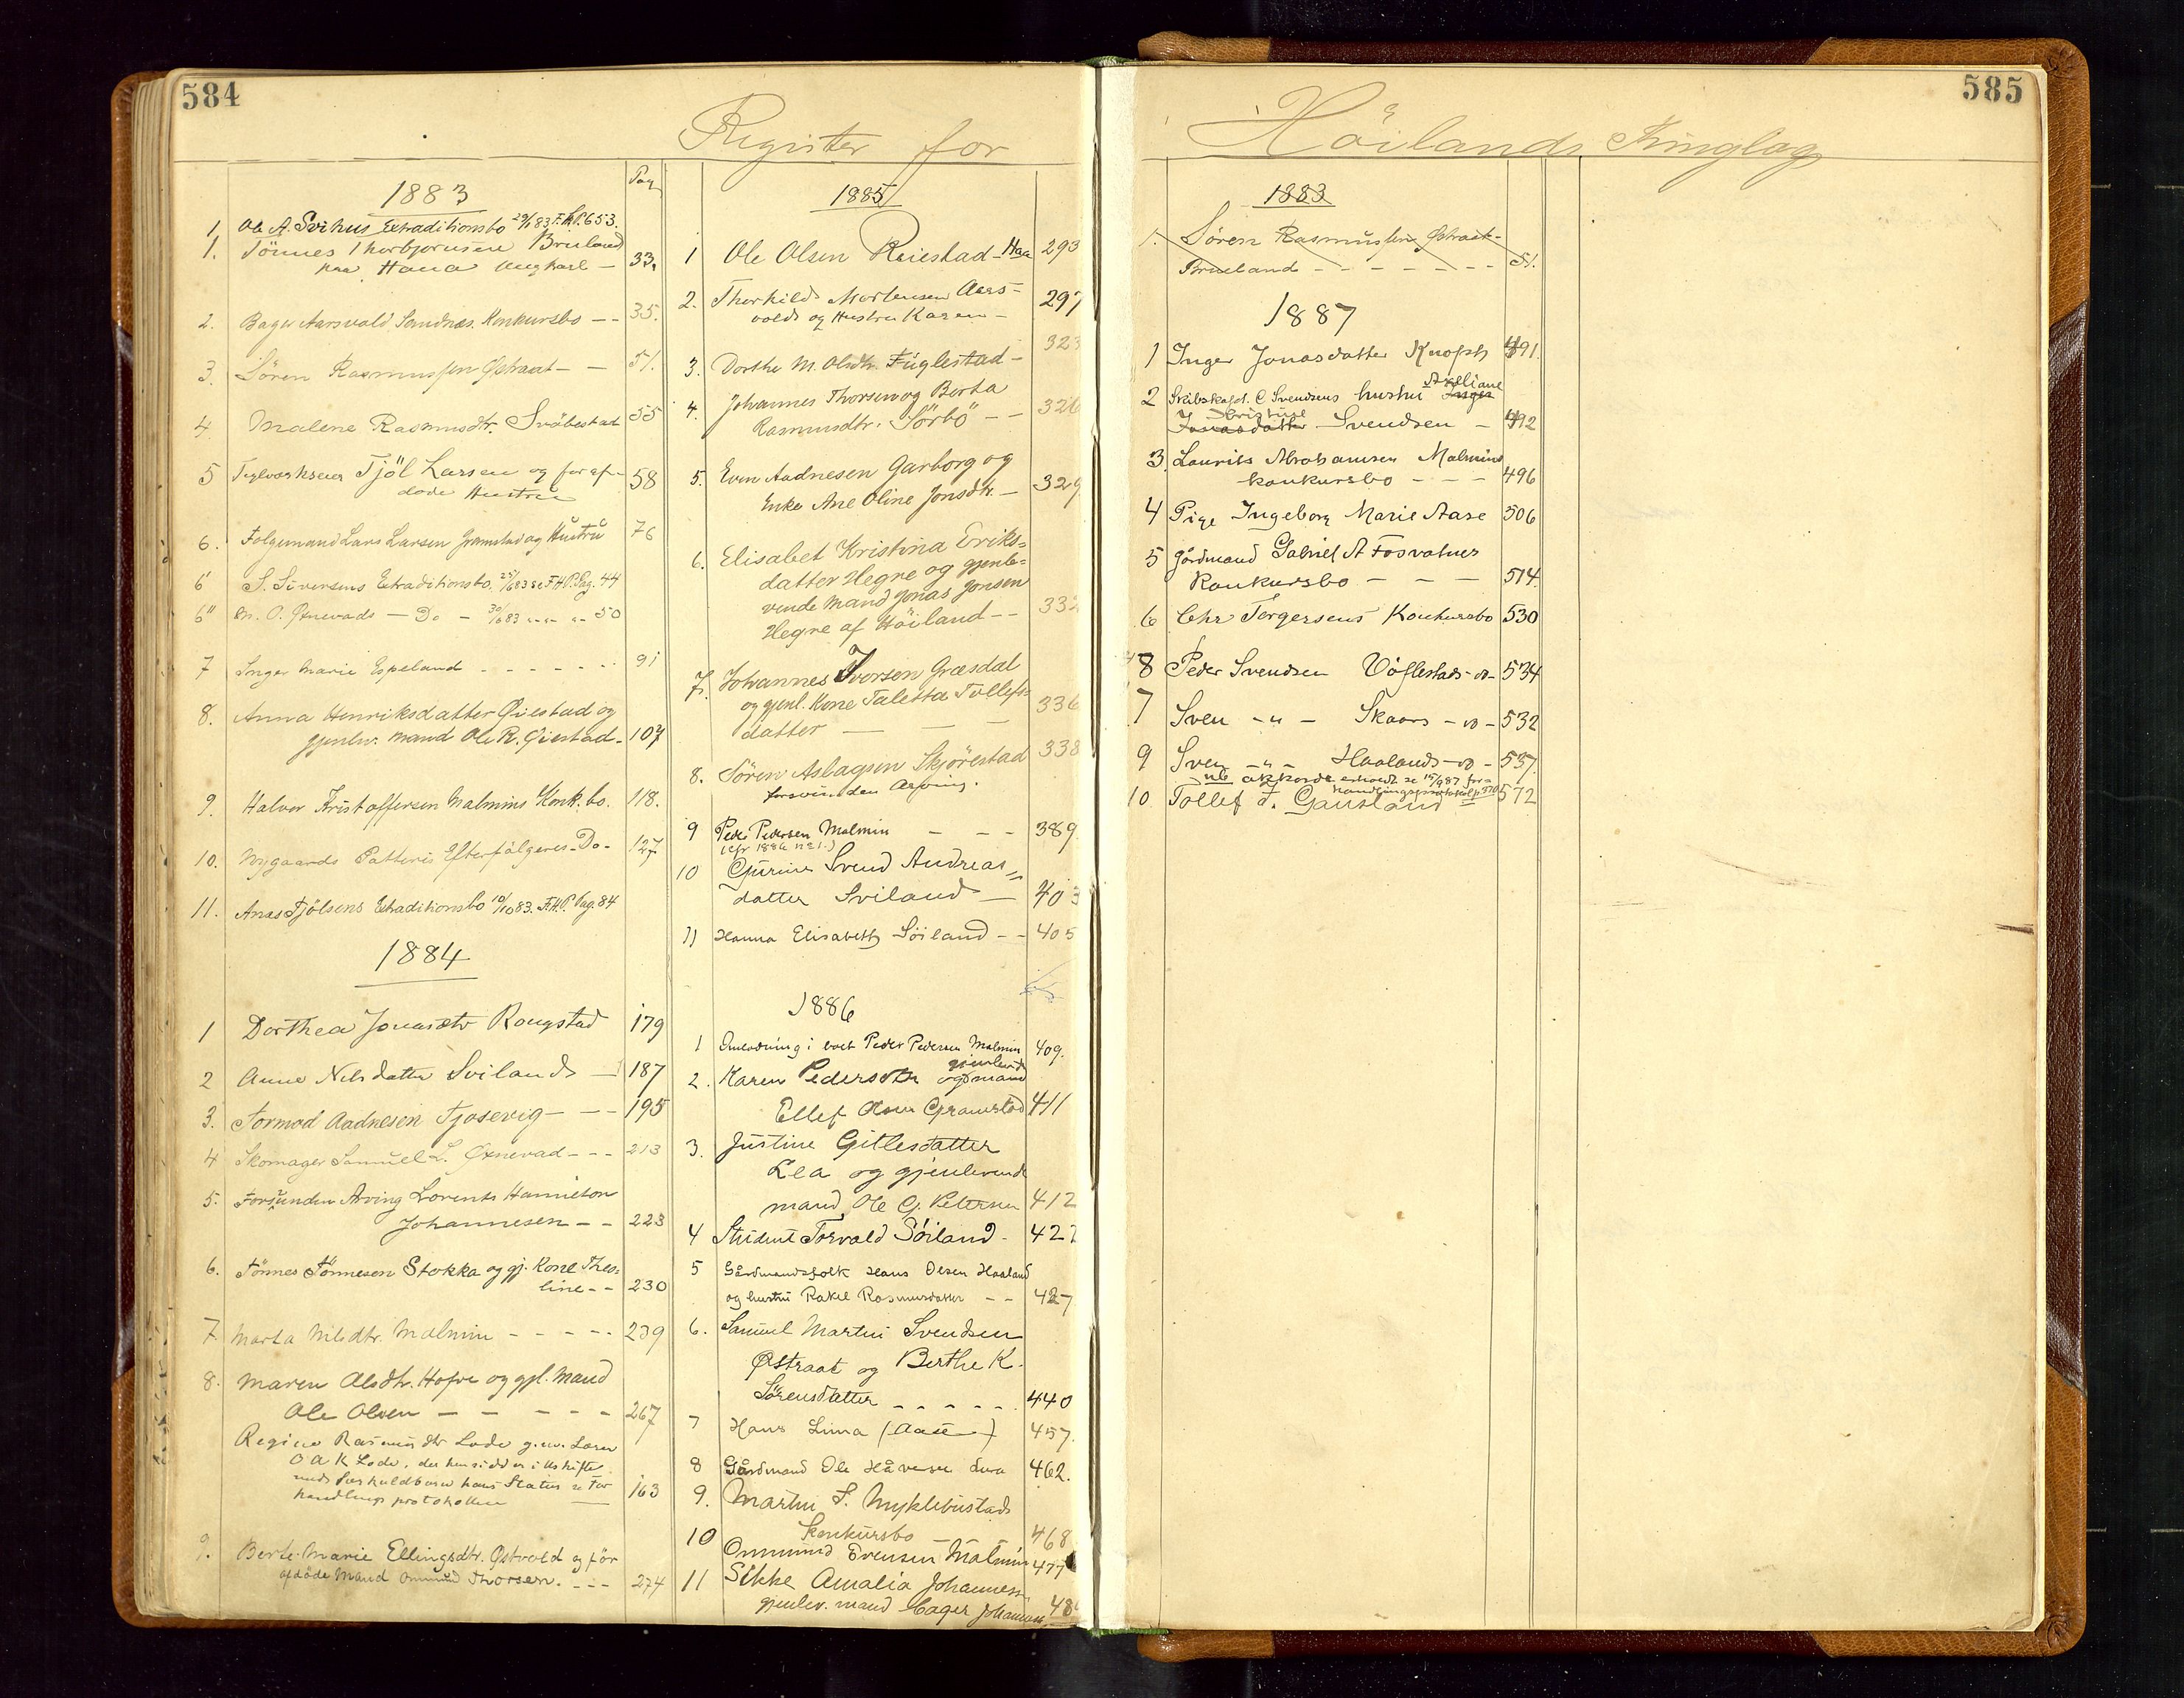 584
Register for
Pag
1883
1 Ole A. Svihus Extraditionsbo 29/1 83 F.H.P. 653.
1. Tönnes Thorbjørnsen Brueland
paa Hana Ungkarl — 33.
2. Bager Aarsvold Sandnæs. Konkursbo — - 35.
3. Sören Rasmussen Østraat — — 51.
4. Malene Rasmusdtr. Svöbestad 55
5 Teglværkseier Tjöl Larsen og før af-
døde Hustru 58
6. Folgemand Lars Larsen Gramstad og Hustru 76
6' S. Siversens Extraditionsbo. 25/6 83 se F.H.P. Pag. 44
6" M. O. Øxnevads — Do — 30/6 83 " " " 50
7 Inger Marie Espeland - - - - - - 91
8. Anna Henriksdatter Øiestad og
gjenlev. mand Ole R. Øiestad - 107
9. Halvor Kristoffersen Malmins Konk. bo. 118.
10. Nygaards Potteris Efterfölgeres - Do - 127
11. Anas Tjölsens Extraditionsbo 10/10 83. F.H.P. Pag. 84
1884
1 Dorthea Jonasdtr Rougstad 179
2 Anne Nilsdatter Sviland — 187
3. Tormod Aadnesen Tjosevig — — — 195
4 Skomager Samuel L. Øxnevad — - - 213
5. Forsvunden Arving Lorents Hamilton
Johannesen — - 223
6. Tönnes Tönnesen Stokka og gj. Kone Theo-
line - - 230
7. Marta Nilsdtr. Malmin - - - - - 239
8. Maren Olsdtr. Hofve og gjl. Mand
Ole Olsen — — — — - 267
Regine Rasmusdtr Lode g.m. Laren
O A K Lode, der hensidder i Uskifte
med Særkuldbarn hans Status se For
handlingsprotokollen — 163
9. Berte Marie Ellingsdtr. Østvold og før
afdøde Mand Ommund Thorsen. - - - 274
1885
1 Ole Olsen Reiestad - Haa 293
2. Thorkild Mortensen Aars-
vold og Hustru Karen — 297
3. Dorthe M. Olsdtr. Fuglestad — 323
4. Johannes Thorsen og Berta
Rasmusdtr. Sörbö — — 326
5. Even Aadnesen Garborg og
Enke Ane Oline Jonsdtr. — 329
6. Elisabet Kristina Eriks-
datter Hegre og gjenle-
vende Mand Jonas Jonsen
Hegre af Höiland - - 332
7. Johannes Ivorsen Græsdal
og gjenl. Kone Taletta Tollefs-
datter — — — 336
8. Sören Aslagsen Skjörestad 338
forsvunden Arving.
9 Peder Pedersen Malmin — — — 389.
(cfr 1886 No 1.)
10 Gurine Svend Andreas
datter Sviland — 403
11 Hanna Elisabeth Söiland - - 405
1886
1 Omlodning i boet Peder Pedersen Malmin 409.
2. Karen Pedersdtr og gjenlevende mand
Ellef Olsen Gramstad 411
3. Justine Gitlesdatter
Lea og gjenlevende
mand, Ole G. Petersen 412
4 Student Torvald Söiland - 422
5 Gårdmandsfolk Hans Olsen Haaland
og hustru Rakel Rasmusdatter - - 427
6. Samuel Martin Svendsen
Østraat og Berthe K.
Sörensdatter - - - - - 440
7 Hans Lima (Aase) 457.
8 Gårdmand Ole Håversen Lura 462.
9. Martin S. Myklebustads
Konkursbo — 468
10 Ommund Evensen Malmin 477
11 Sikke Amalia Johanness.
gjenlev. mand Eager Johannesen 48
585
Höilands Thinglag
1883
1. Sören Rasmussen Østraat -
Brueland - - - - - - - 51.
1887
1 Inger Jonasdatter Knopsh 491.
2 Skibskapt. C Svendsens hustru Inger Axeliane
Jonasdatter J Christine Svendsen — 492
3. Laurits Abrahamsen Malmins
konkursbo — — — 496
4 Pige Ingeborg Marie Aase 506
5 Gårdmand Gabriel A Fosvatnes
Konkursbo — — — 514.
6 Chr Torgersens Konkursbo 530
8 Peder Svendsen Vöflestads - do - 534
7 Sven - " - Skaars - do - 532
9 Sven - " - Haalands - do - 537.
NB akkord erholdt se 15/9 87 for-
handlingsprotokol p. 370
10 Tollef T. Gausland = 572